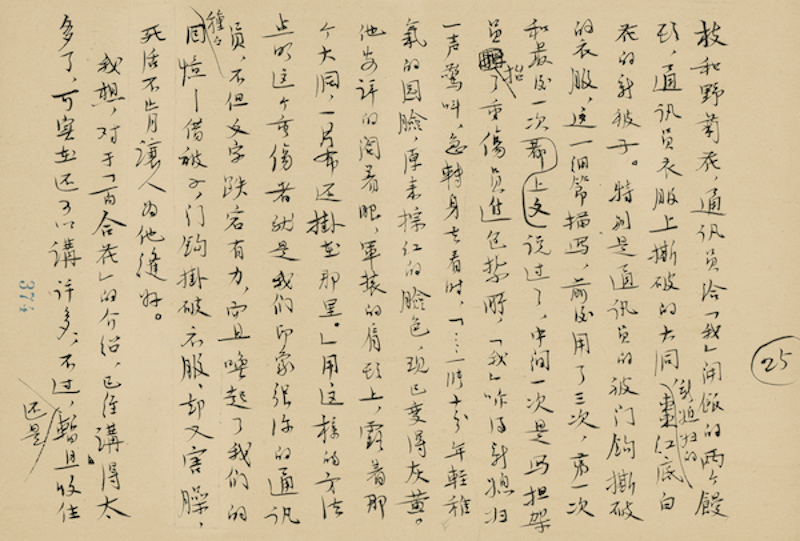 25
枝和野菊花，通讯员给「我」開飯的两个饅
头，通讯员衣服上撕破的大洞，新媳妇的枣红底白
花的新被子。特别是通讯员的被门钩撕破
的衣服，这一细節描写，前后用了三次，第一次
和最后一次都上文说过了，中间一次是写担架
员抬了重傷员進包紮所，「我」听得新媳妇
一声驚叫，急轉身去看时，「……一张十分年轻稚
氣的圆臉，原来棕红的臉色，现已变得灰黄。
他安详的阖着眼，军装的肩头上，露着那
个大洞，一片布还掛在那里。」用这样的方法
点明这个重傷者就是我们印象很深的通讯
员，不但文字跌宕有力，而且喚起了我们的
种种回憶—借被子，门鈎掛破衣服，却又害臊，
死活不肯讓人为他缝好。
我想，对于「百合花」的介绍，已经講得太
多了，可实在还可以講许多，不过，还是暫且收住
374